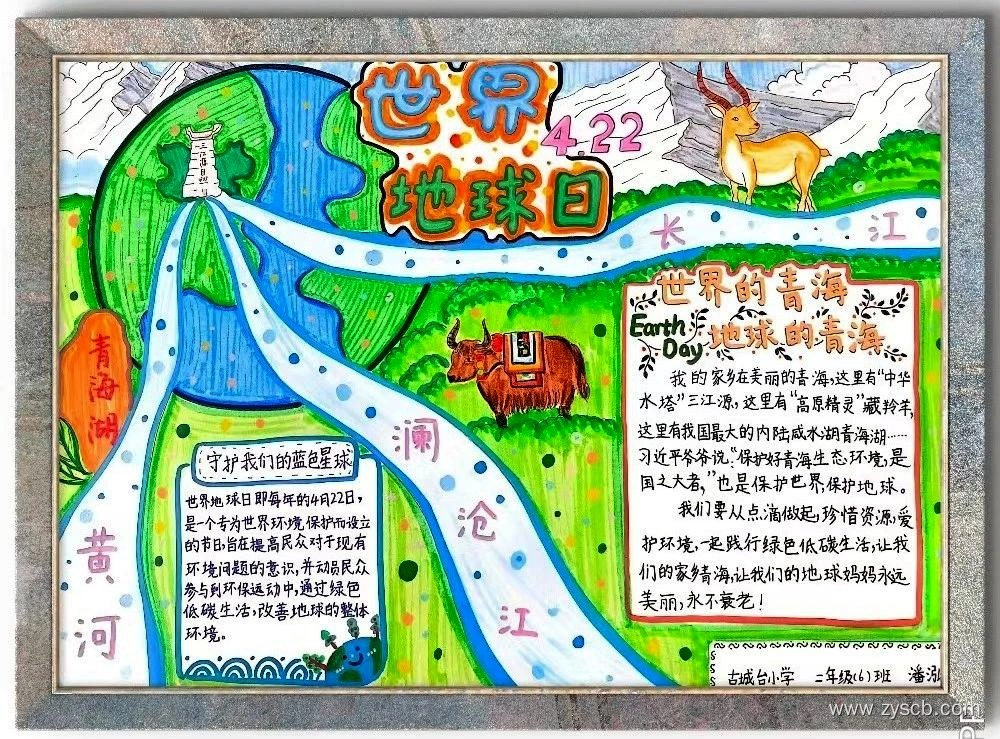 世界
4.22
地球日
长江
青海湖
澜沧江
黄河
世界的青海
Earth Day
地球的青海
我的家乡在美丽的青海，这里有“中华
水塔”三江源，这里有“高原精灵”藏羚羊，
这里有我国最大的内陆咸水湖青海湖……
习近平爷爷说：“保护好青海生态环境，是
国之大者，”也是保护世界，保护地球。
我们要从点滴做起，珍惜资源，爱
护环境，一起践行绿色低碳生活，让我
们的家乡青海，让我们的地球妈妈永远
美丽，永不衰老！
守护我们的蓝色星球
世界地球日即每年的4月22日，
是一个专为世界环境保护而设立
的节日，旨在提高民众对于现有
环境问题的意识，并动员民众
参与到环保运动中，通过绿色
低碳生活，改善地球的整体
环境。
古城台小学 二年级(6)班 潘泓
www.zyscb.com